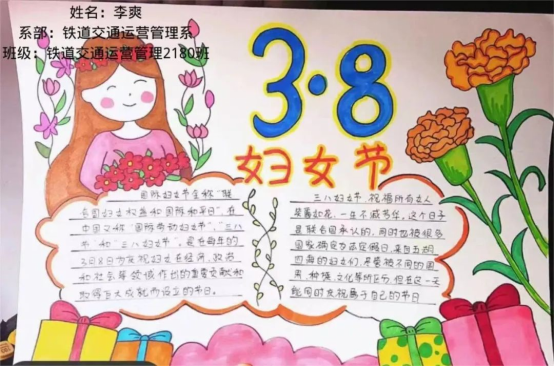 姓名：李爽
系部：铁道交通运营管理系
班级：铁道交通运营管理2180班
3·8
妇女节
国际妇女节全称“联
合国妇女权益和国际和平日”，在
中国又称“国际劳动妇女节”、“三八
节”和“三八妇女节”，是在每年的
3月8日为庆祝妇女在经济、政治
和社会等领域作出的重要贡献和
取得巨大成就而设立的节日。
三八妇女节，祝福所有女人
笑靥如花，一生不减芳华，这个日子
是联合国承认的，同时也被很多
国家确定为法定假日。来自五湖
四海的妇女们，尽管被不同的国
界、种族、文化等所区分，但在这一天
能同时庆祝属于自己的节日